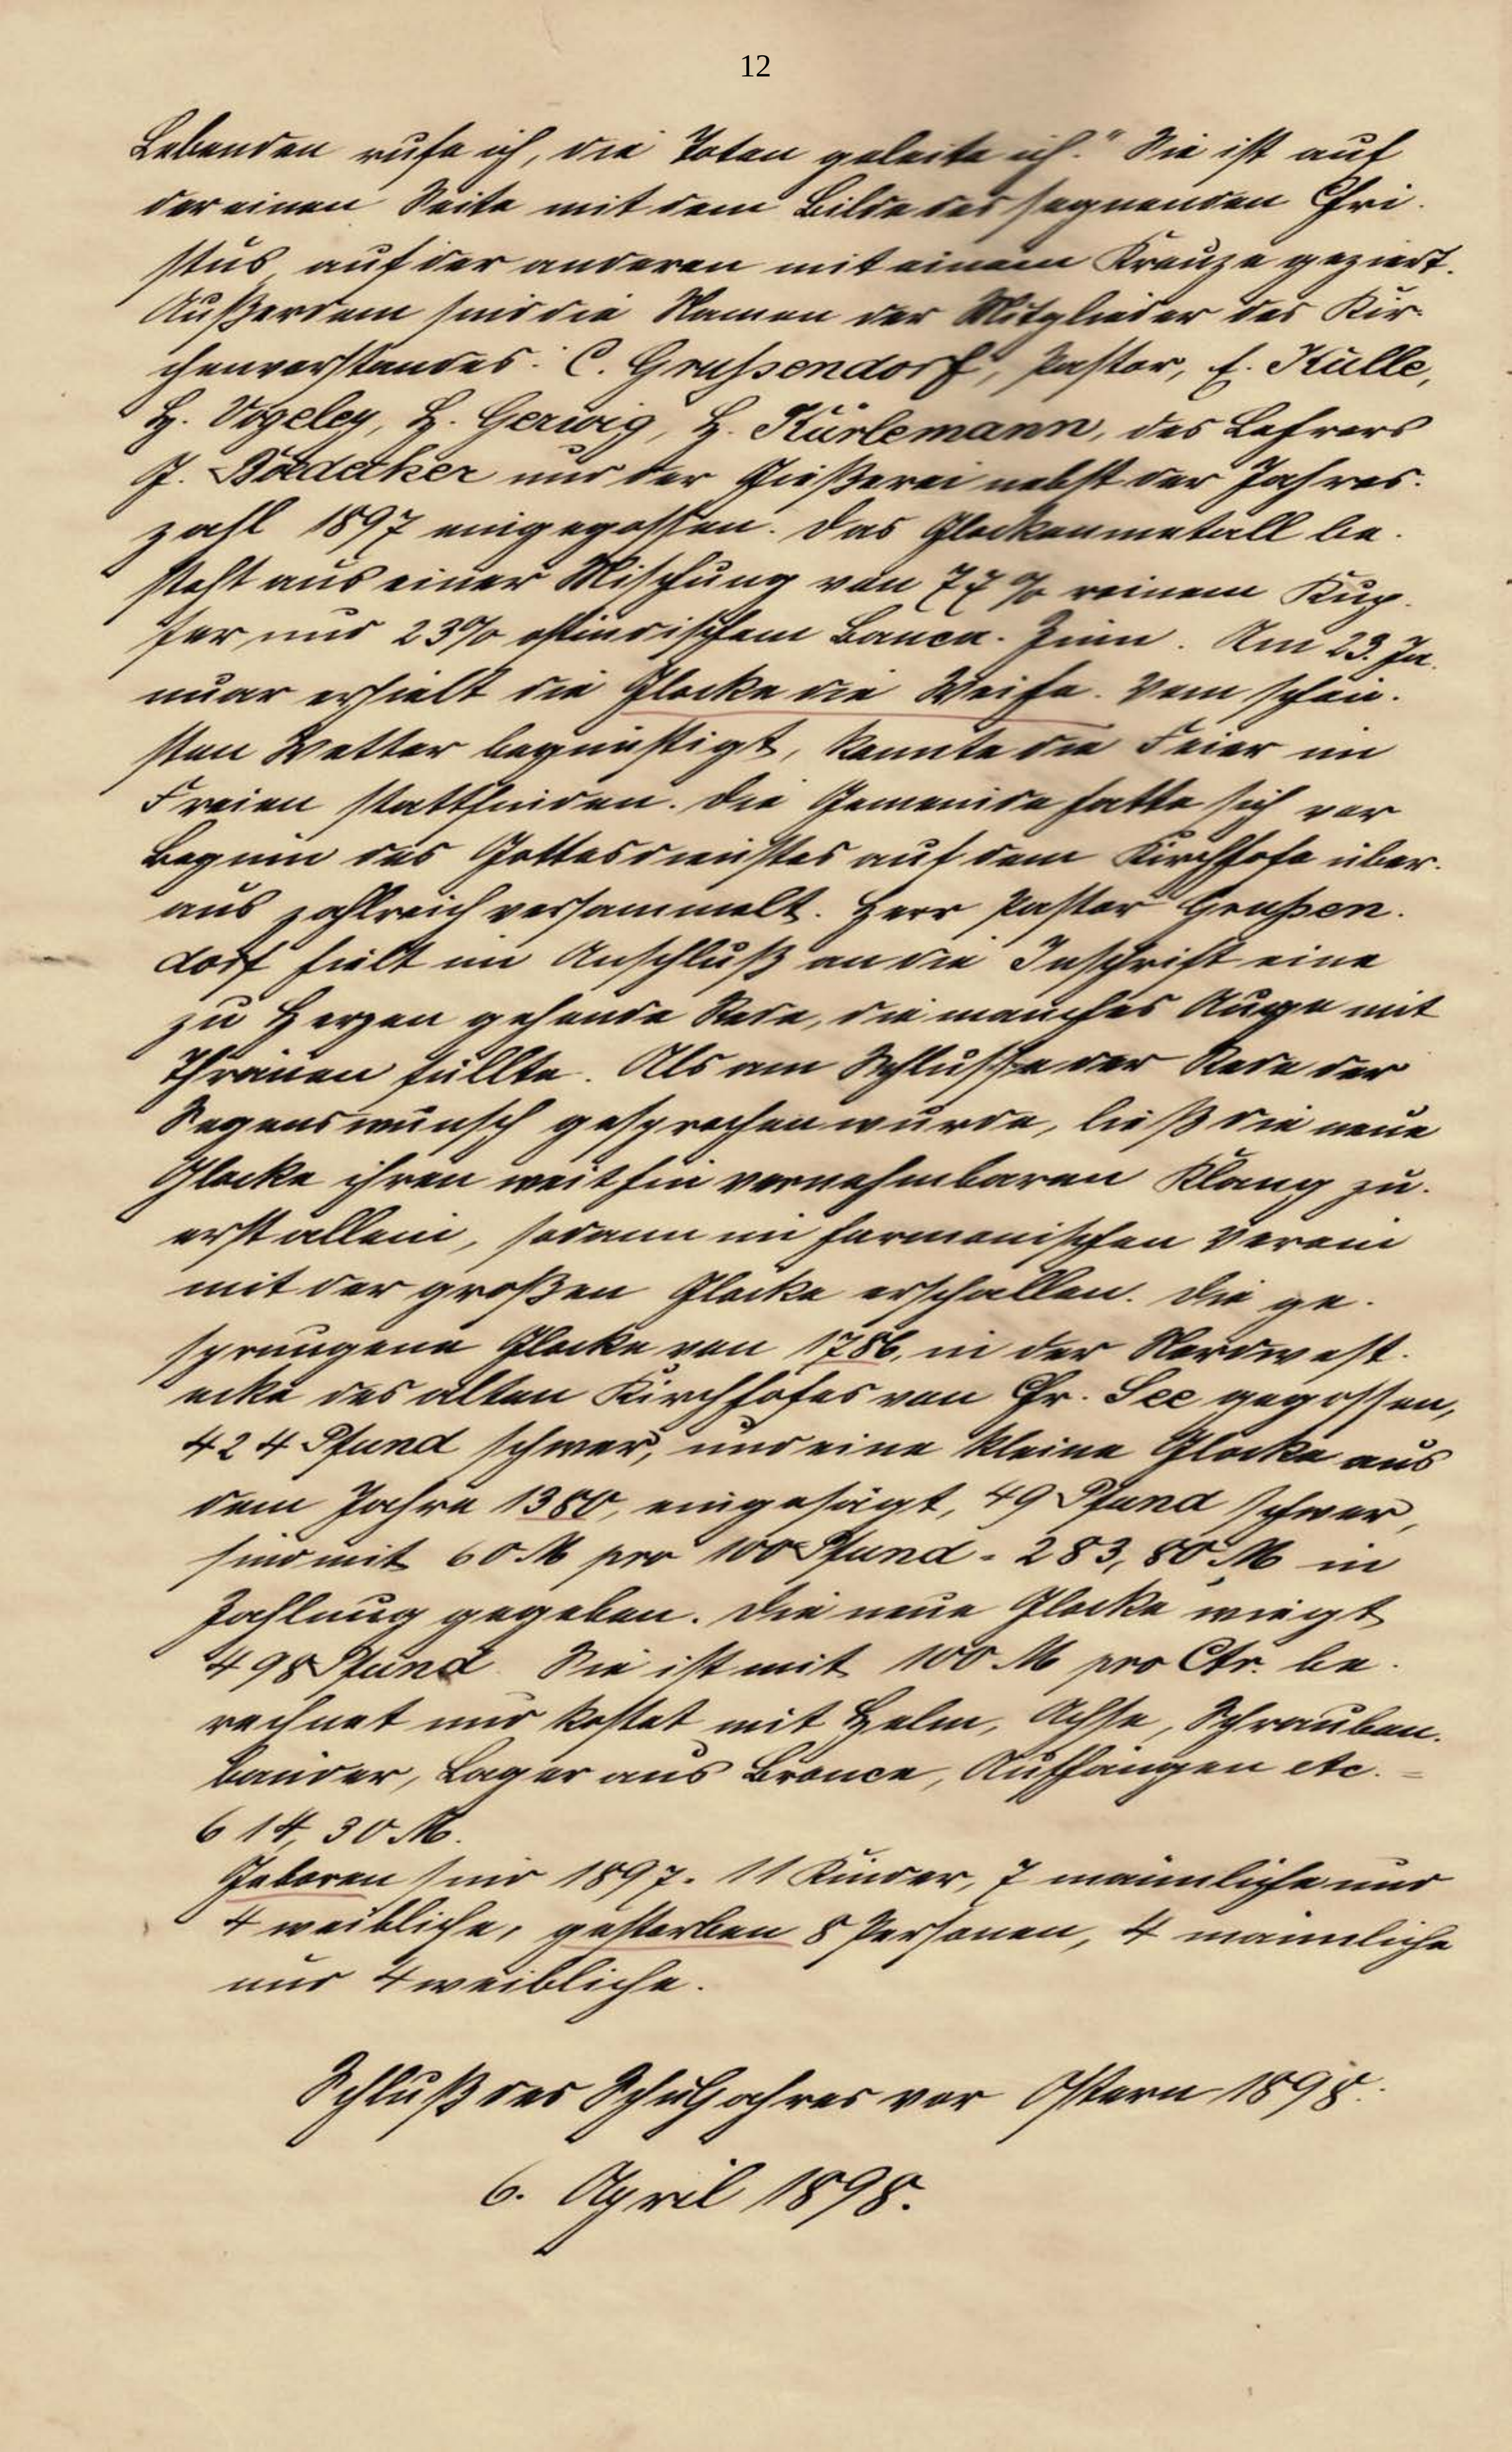 12
Lebenden rufe ich, die Toten geleite ich." Sie ist auf
der einen Seite mit dem Bilde des segnenden Chri-
stus, auf der anderen mit einem Kreuze geziert.
Außerdem sind die Namen der Mitglieder des Kir-
chenvorstandes: C. Grußendorf, Pastor, E. Külle,
H. Vogeley, H. Gerwig, H. Kürlemann, des Lehrers
J. Bödecker und der Gießerei nebst der Jahres-
zahl 1897 eingegossen. Das Glockenmetall be-
steht aus einer Mischung von 77% reinem Kup-
fer und 23% ostindischem Banca-Zinn. Am 23. Ja-
nuar erhielt die Glocke die Weihe. Vom schön-
sten Wetter begünstigt, konnte die Feier im
Freien stattfinden. Die Gemeinde hatte sich vor
Beginn des Gottesdienstes auf dem Kirchhofe über-
aus zahlreich versammelt. Herr Pastor Grußen-
dorf hielt im Anschluß an die Inschrift eine
zu Herzen gehende Rede, die manches Auge mit
Thränen füllte. Als am Schlusse der Rede der
Segenswunsch gesprochen wurde, ließ die neue
Glocke ihren weithin vernehmbaren Klang zu-
erst allein, sodann im harmonischen Verein
mit der großen Glocke erschallen. Die ge-
sprungene Glocke von 1786, in der Nordwest-
ecke des alten Kirchhofes von Chr. See gegossen,
424 Pfund schwer, und eine kleine Glocke aus
dem Jahre 1380, eingesägt, 49 Pfund schwer,
sind mit 60 M pro 100 Pfund = 283,80 M in
Zahlung gegeben. Die neue Glocke wiegt
498 Pfund. Sie ist mit 100 M pro Ctr. be-
rechnet und kostet mit Helm, Achse, Schrauben-
bänder, Lager aus Bronce, Aufhängen etc. =
614,30 M.
Geboren sind 1897: 11 Kinder, 7 männliche und
4 weibliche, gestorben 8 Personen, 4 männliche
und 4 weibliche.
Schluß des Schuljahres vor Ostern 1898:
6. April 1898.